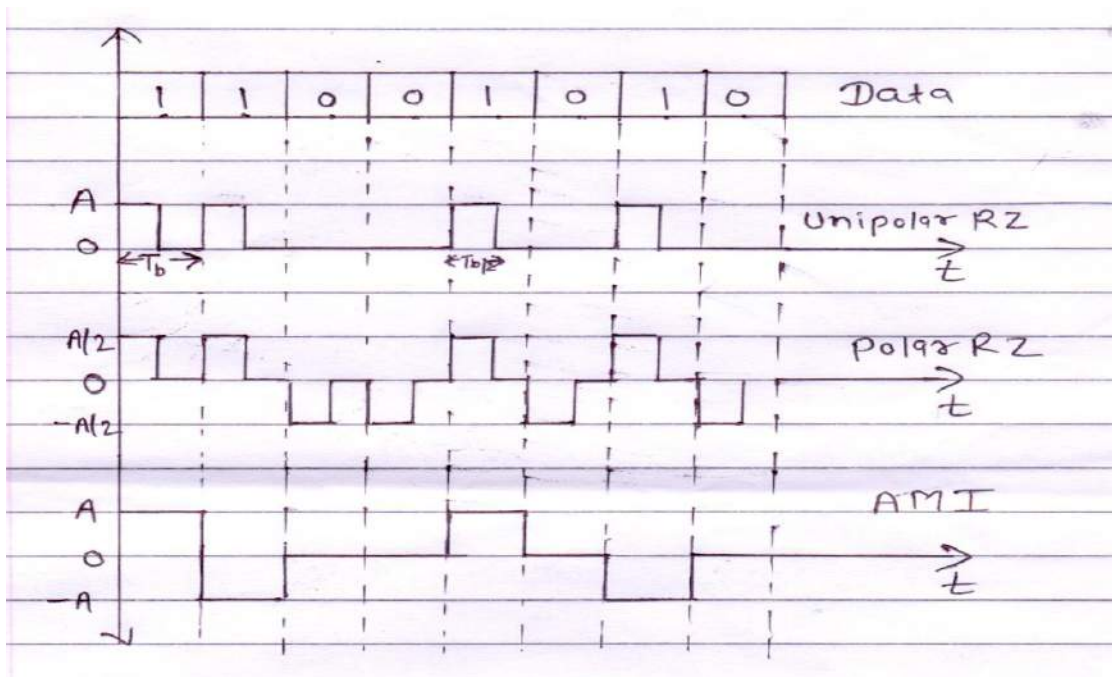 1 1 0 0 1 0 1 0 Data
A
0
Unipolar RZ
Tb
Tb/2
t
A/2
0
-A/2
Polar RZ
t
A
0
-A
AMI
t